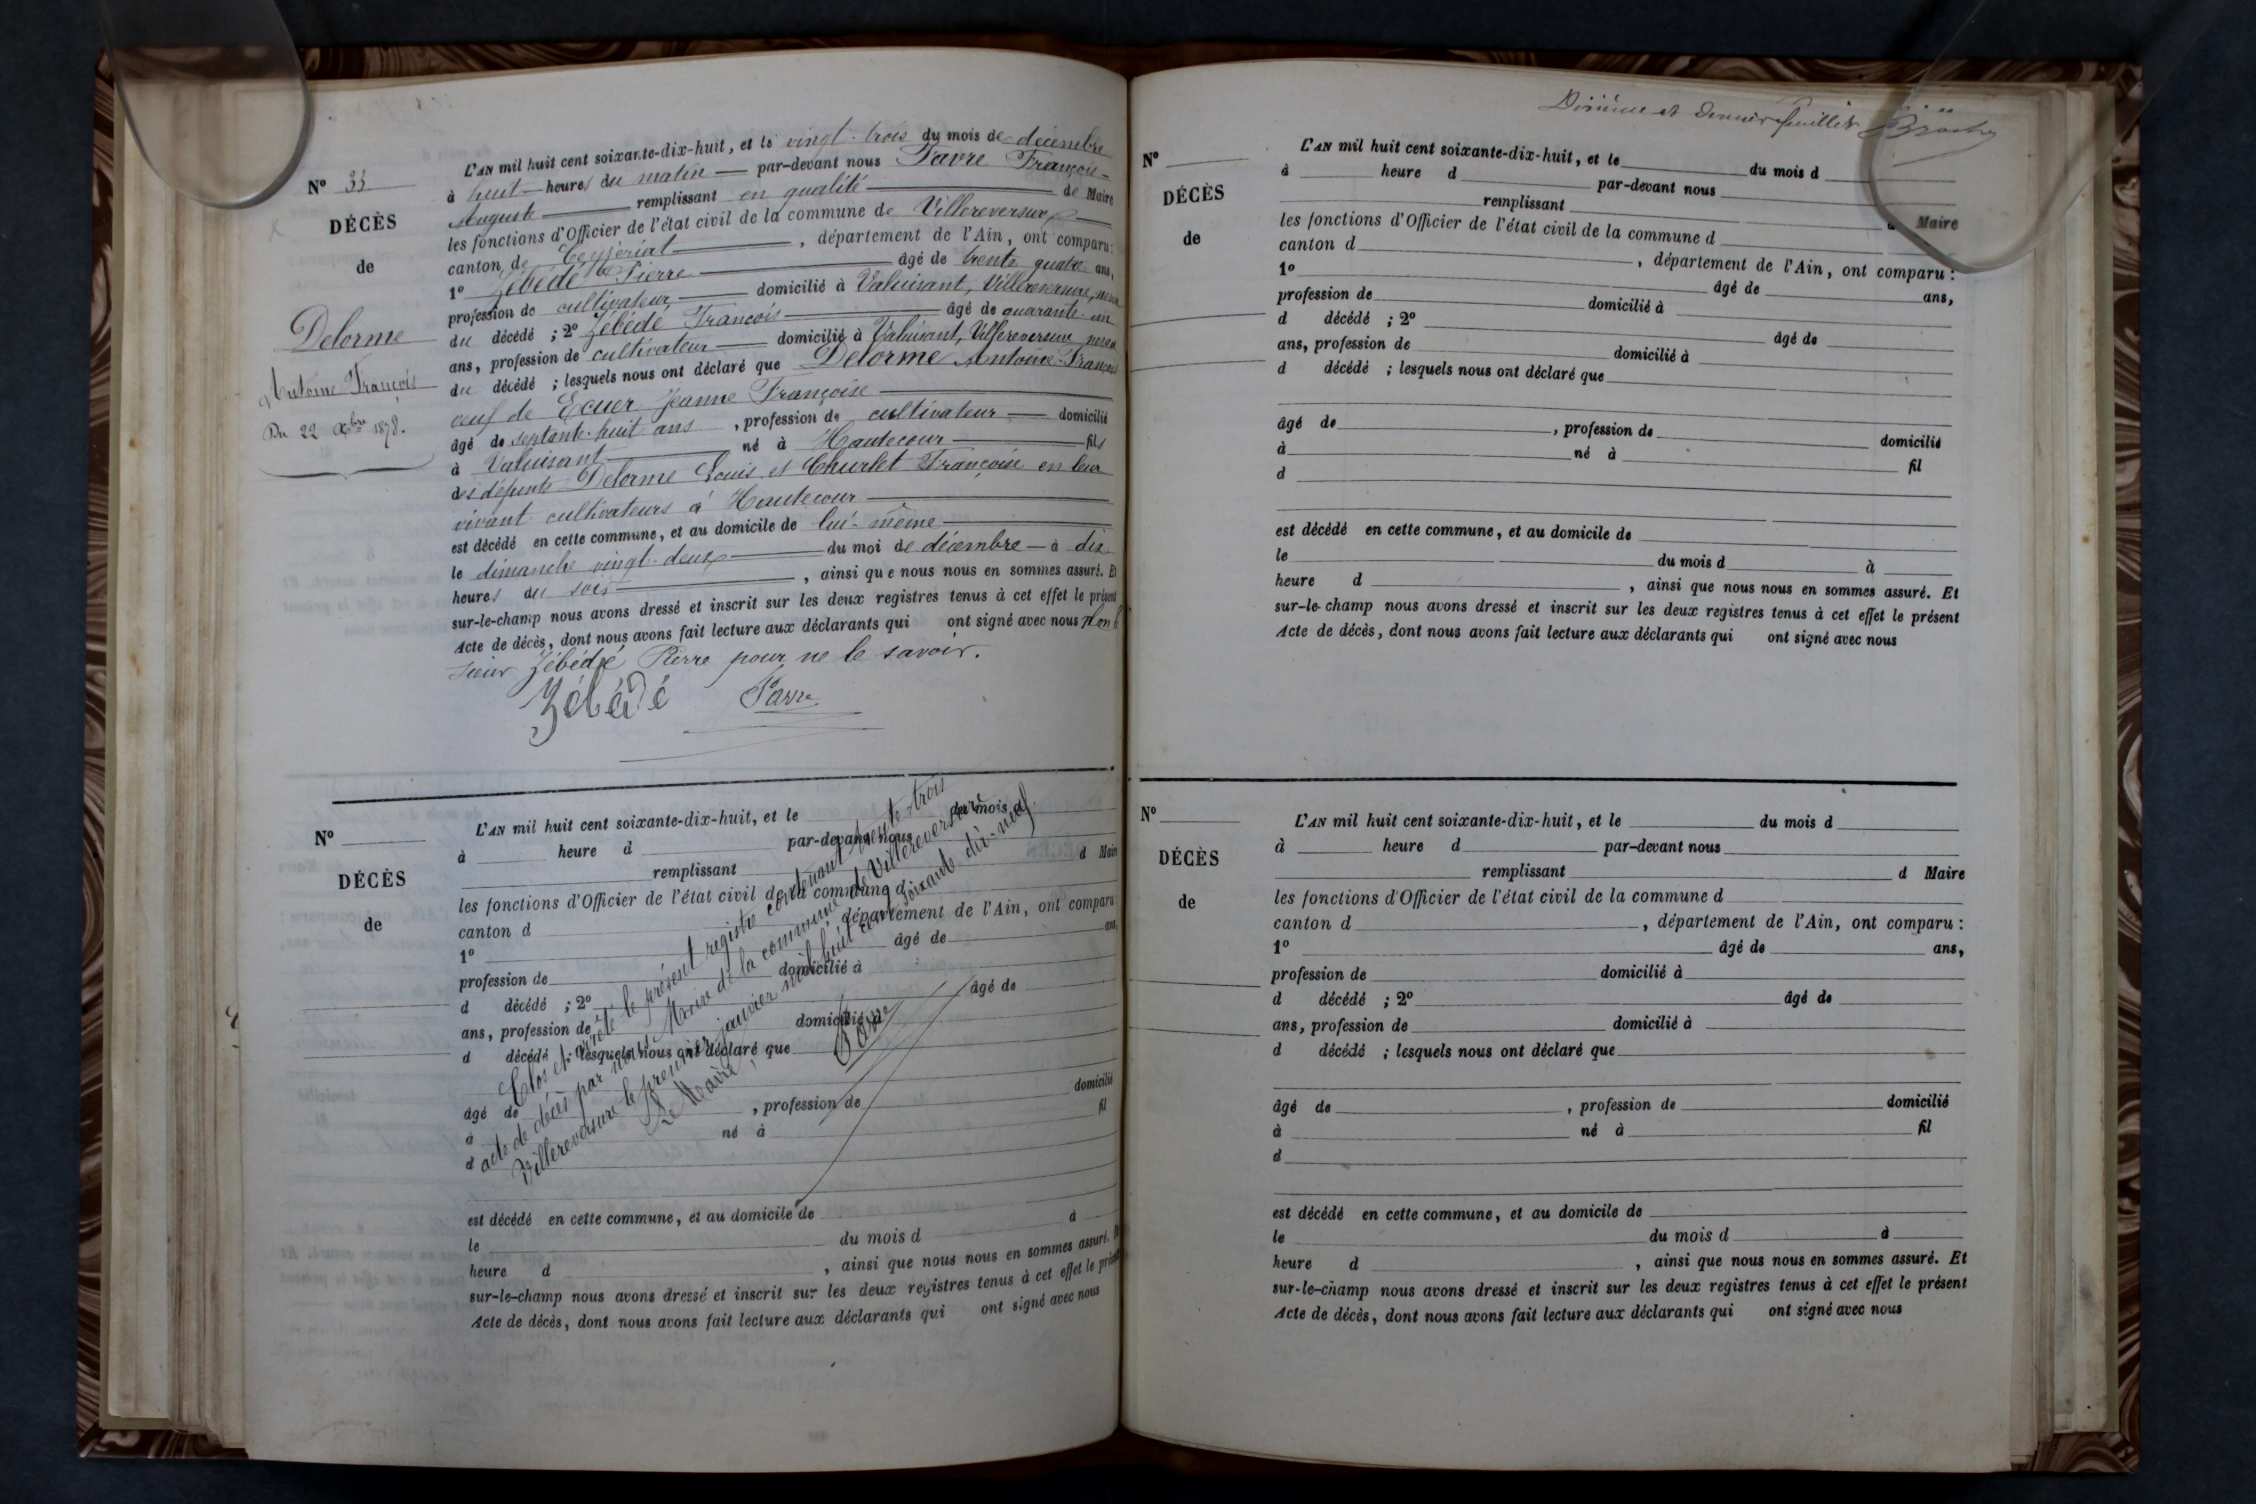 N° 33
DÉCÈS
de
Delorme
Antoine François
Du 22 Xbre 1878.
L'AN mil huit cent soixante-dix-huit, et le vingt-trois du mois de décembre
à huit heures du matin par-devant nous Favre François-
Auguste remplissant en qualité de Maire
les fonctions d'Officier de l'état civil de la commune de Villereversure
canton de Ceyzériat, département de l'Ain, ont comparu:
1° Zébédé Pierre âgé de trente quatre ans,
profession de cultivateur domicilié à Valuisant, Villereversure, neveu
du décédé ; 2° Zébédé François âgé de quarante-un
ans, profession de cultivateur domicilié à Valuisant, Villereversure neveu
du décédé ; lesquels nous ont déclaré que Delorme Antoine-François
veuf de Ecuer Jeanne Françoise
âgé de septante-huit ans, profession de cultivateur domicilié
à Valuisant né à Hautecour fils
des défunts Delorme Louis et Churlet Françoise en leur
vivant cultivateurs à Hautecour
est décédé en cette commune, et au domicile de lui-même
le dimanche vingt-deux du moi de décembre à dix
heures du soir, ainsi que nous nous en sommes assuré. Et
sur-le-champ nous avons dressé et inscrit sur les deux registres tenus à cet effet le présent
Acte de décès, dont nous avons fait lecture aux déclarants qui ont signé avec nous non le
sieur Zébédé Pierre pour ne le savoir.
Zébédé Favre
N°
DÉCÈS
de
L'AN mil huit cent soixante-dix-huit, et le du mois
à heure d par-devant nous
remplissant d Maire
les fonctions d'Officier de l'état civil de la commune d
canton d , département de l'Ain, ont comparu
1° âgé de ans,
profession de domicilié à
d décédé ; 2° âgé de
ans, profession de domicilié à
d décédé ; lesquels nous ont déclaré que
âgé de , profession de domicilié
à né à fil
d
est décédé en cette commune, et au domicile de
le du mois d à
heure d , ainsi que nous nous en sommes assuré. Et
sur-le-champ nous avons dressé et inscrit sur les deux registres tenus à cet effet le présent
Acte de décès, dont nous avons fait lecture aux déclarants qui ont signé avec nous
Clos et arrêté le présent registre contenant trente-trois
acte de décès par nous Maire de la commune de Villereversure
Villereversure le premier janvier mil huit cent soixante dix-neuf.
Le Maire,
Favre
et dernier feuillet
N°
DÉCÈS
de
L'AN mil huit cent soixante-dix-huit, et le du mois d
à heure d par-devant nous
remplissant d Maire
les fonctions d'Officier de l'état civil de la commune d
canton d , département de l'Ain, ont comparu :
1° âgé de ans,
profession de domicilié à
d décédé ; 2° âgé de
ans, profession de domicilié à
d décédé ; lesquels nous ont déclaré que
âgé de , profession de domicilié
à né à fil
d
est décédé en cette commune, et au domicile de
le du mois d à
heure d , ainsi que nous nous en sommes assuré. Et
sur-le-champ nous avons dressé et inscrit sur les deux registres tenus à cet effet le présent
Acte de décès, dont nous avons fait lecture aux déclarants qui ont signé avec nous
N°
DÉCÈS
de
L'AN mil huit cent soixante-dix-huit, et le du mois d
à heure d par-devant nous
remplissant d Maire
les fonctions d'Officier de l'état civil de la commune d
canton d , département de l'Ain, ont comparu :
1° âgé de ans,
profession de domicilié à
d décédé ; 2° âgé de
ans, profession de domicilié à
d décédé ; lesquels nous ont déclaré que
âgé de , profession de domicilié
à né à fil
d
est décédé en cette commune, et au domicile de
le du mois d à
heure d , ainsi que nous nous en sommes assuré. Et
sur-le-champ nous avons dressé et inscrit sur les deux registres tenus à cet effet le présent
Acte de décès, dont nous avons fait lecture aux déclarants qui ont signé avec nous